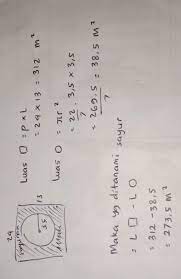 24
13
3,5
Luas □ = p x L
= 24 x 13 = 312 m²
Luas O = πr²
= 22 . 3,5 x 3,5
7
= 269,5 = 38,5 m²
7
Maka yg ditanami sayur
= L □ - L O
= 312 - 38,5
= 273,5 m²